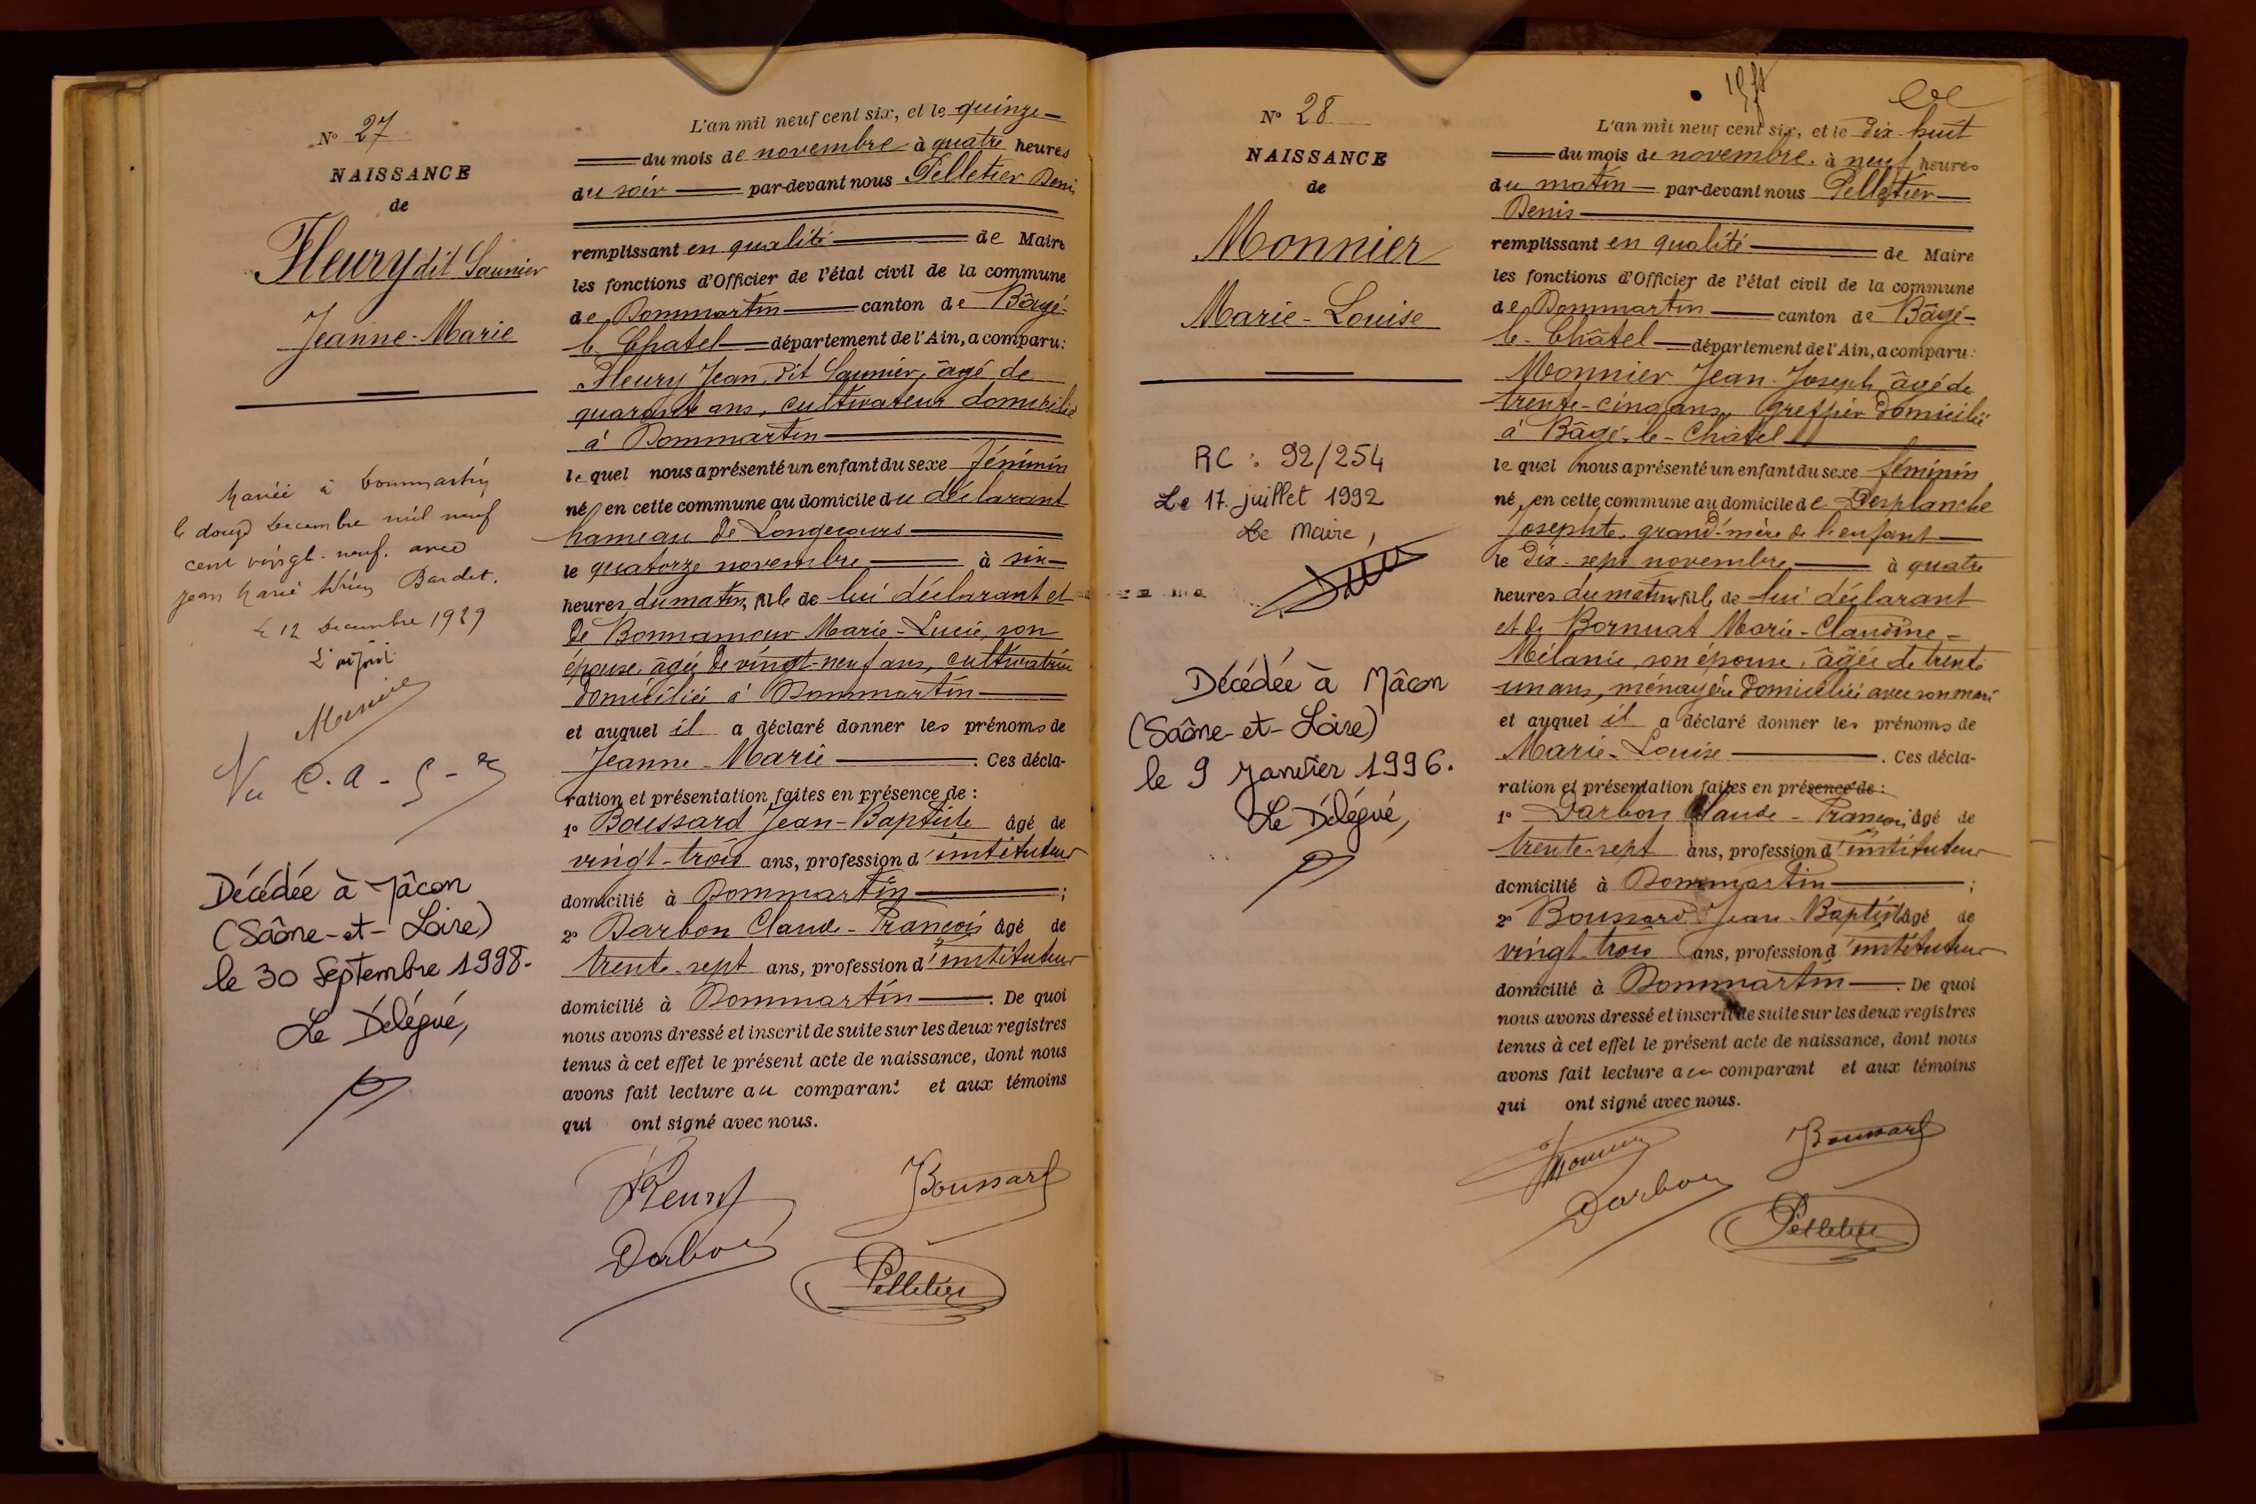 N° 27
NAISSANCE
de
Fleury dit Saunier
Jeanne-Marie
le douze decembre mil neuf
cent vingt-neuf. avec
Jean Marie Bardet.
le 12 Decembre 1929
L'adjoint
Vu
Décédée à Mâcon
(Saône-et-Loire)
le 30 Septembre 1998.
Le Délégué,
L'an mil neuf cent six, et le quinze
du mois de novembre à quatre heures
du soir par-devant nous Pelletier Denis
remplissant en qualité de Maire
les fonctions d'Officier de l'état civil de la commune
de Dommartin canton de Bâgé-
le-Chatel département de l'Ain, a comparu:
Fleury Jean dit Saunier, âgé de
quarante ans, cultivateur domicilié
à Dommartin
lequel nous a présenté un enfant du sexe féminin
né en cette commune au domicile du déclarant
hameau de Longecours
le quatorze novembre à six
heures du matin, fille de lui déclarant et
de Bonnamour Marie-Lucie, son
épouse, âgée de vingt-neuf ans, cultivatrice
domiciliée à Dommartin
et auquel il a déclaré donner les prénoms de
Jeanne-Marie. Ces décla-
ration et présentation faites en présence de :
1° Boussard Jean-Baptiste âgé de
vingt-trois ans, profession d'instituteur
domicilié à Dommartin ;
2° Darbon Claude-François âgé de
trente-sept ans, profession d'instituteur
domicilié à Dommartin. De quoi
nous avons dressé et inscrit de suite sur les deux registres
tenus à cet effet le présent acte de naissance, dont nous
avons fait lecture au comparant et aux témoins
qui ont signé avec nous.
Fleury Boussard
Darbon Pelletier
N° 28
NAISSANCE
de
Monnier
Marie-Louise
RC : 92/254
Le 17 juillet 1992
Le Maire,
Décédée à Mâcon
(Saône-et-Loire)
le 9 Janvier 1996.
Le Délégué,
L'an mil neuf cent six, et le dix-huit
du mois de novembre à neuf heures
du matin par-devant nous Pelletier
Denis
remplissant en qualité de Maire
les fonctions d'Officier de l'état civil de la commune
de Dommartin canton de Bâgé-
le-Châtel département de l'Ain, a comparu:
Monnier Jean-Joseph, âgé de
trente-cinq ans, greffier domicilié
à Bâgé-le-Châtel
lequel nous a présenté un enfant du sexe féminin
né en cette commune au domicile de Desplanche
Josephte, grand'mère de l'enfant
le dix-sept novembre à quatre
heures du matin, fille de lui déclarant
et de Bornuat Marie-Claudine-
Mélanie, son épouse, âgée de trente
un ans, ménagère domiciliée avec son mari
et auquel il a déclaré donner les prénoms de
Marie-Louise. Ces décla-
ration et présentation faites en présence de :
1° Darbon Claude-François âgé de
trente-sept ans, profession d'instituteur
domicilié à Dommartin ;
2° Boussard Jean-Baptiste âgé de
vingt-trois ans, profession d'instituteur
domicilié à Dommartin. De quoi
nous avons dressé et inscrit de suite sur les deux registres
tenus à cet effet le présent acte de naissance, dont nous
avons fait lecture au comparant et aux témoins
qui ont signé avec nous.
Monnier Boussard
Darbon Pelletier